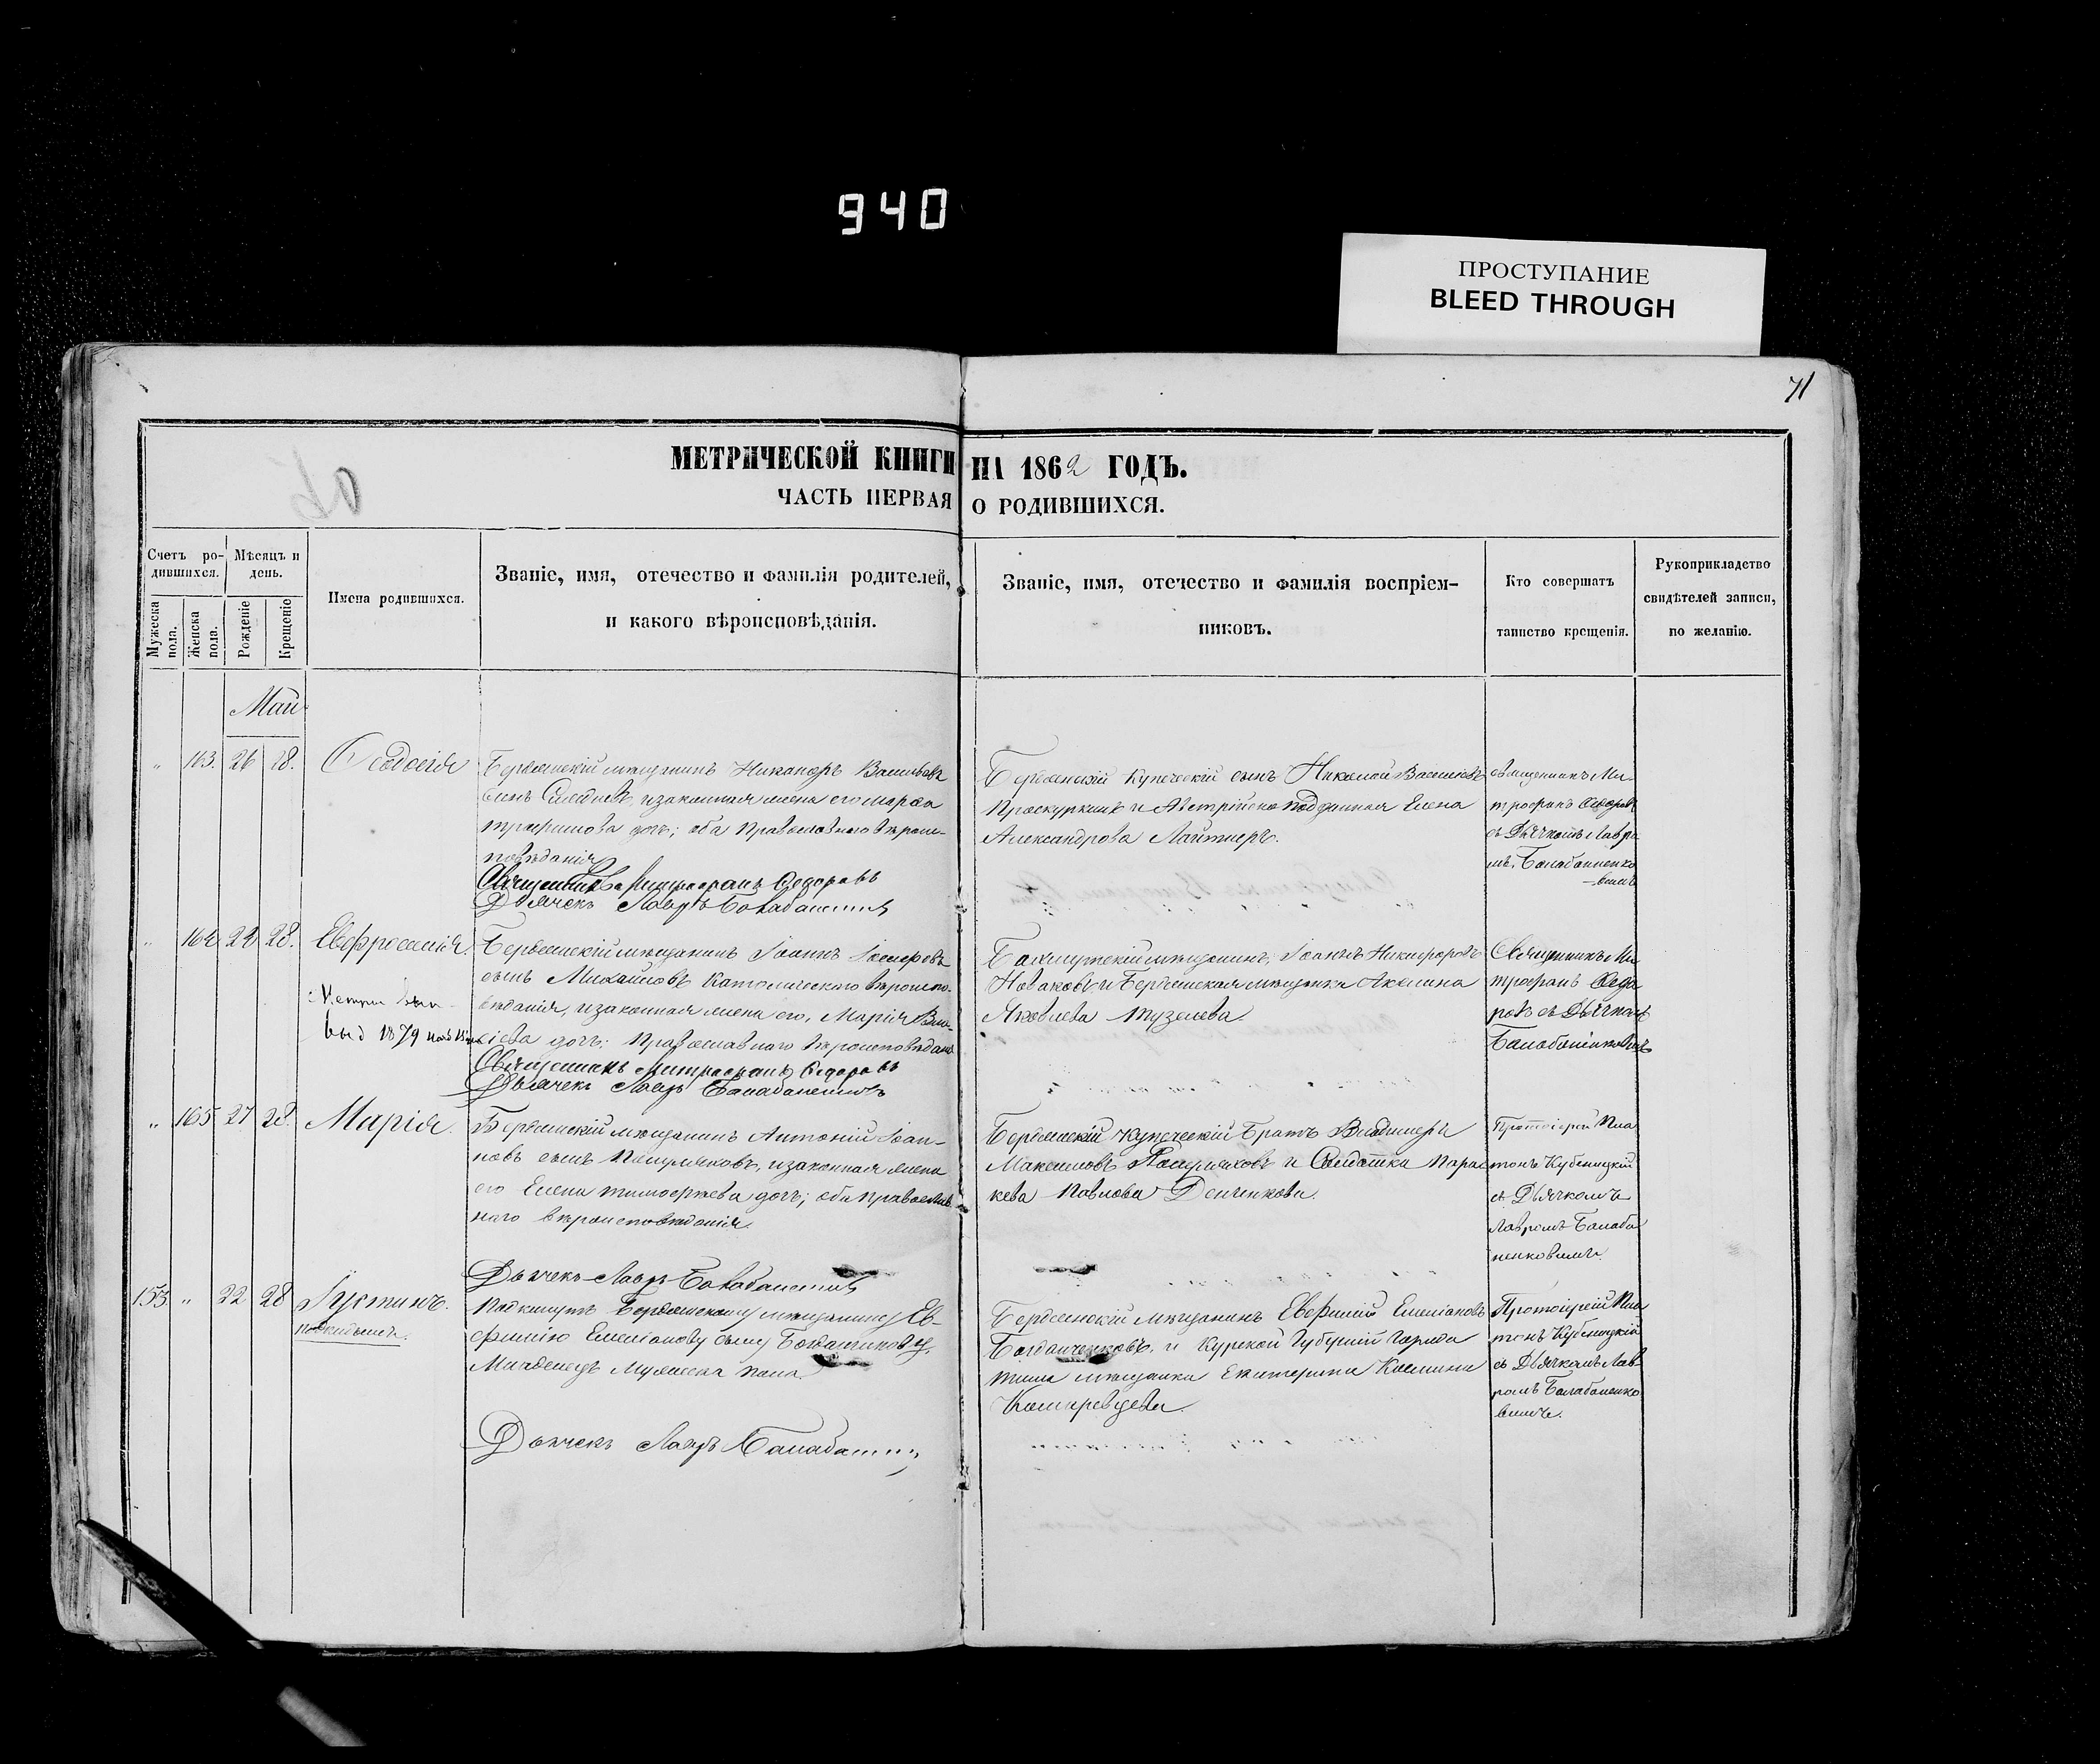 940
ПРОСТУПАНИЕ
BLEED THROUGH
71
МЕТРИЧЕСКОЙ КНИГИ НА 1862 ГОДЪ.
ЧАСТЬ ПЕРВАЯ О РОДИВШИХСЯ.
Счетъ ро-
дившихся.
Мужеска пола.
Женска пола.
Мѣсяцъ и
день.
Рожденіе
Крещеніе
Имена родившихся.
Званіе, имя, отечество и фамилія родителей,
и какого вѣроисповѣданія.
Званіе, имя, отечество и фамилія воспріем-
никовъ.
Кто совершатъ
таинство крещенія.
Рукоприкладство
свидѣтелей записи,
по желанію.
Май
„ 163. 26 28. Ѳеодосія
Бердянскій мѣщанинъ Никаноръ Васильевъ
сынъ и законная жена его Марѳа
Трофимова дочь; оба Православнаго вѣроис-
повѣданія
Священникъ Митрофанъ Ѳедоровъ
Дьячекъ Лавръ
Бердянскій купеческій сынъ Николай Васильевъ
Проскуркинъ и Австрійско подданная Елена
Александрова Лайтнеръ.
священникъ Ми-
трофанъ Ѳедоровъ
съ Дьячкомъ Лавро
мъ Балабаненко
-вымъ
„ 164 24 28. Евфросинія.
выд 1879
Бердянскій мѣщанинъ Іоаннъ Іосифовъ
сынъ Михайловъ Католическаго вѣроиспо-
вѣданія, и законная жена его, Марія Вла-
сіева дочь; Православнаго вѣроисповѣданія
Священникъ Митрофанъ Ѳедоровъ
Дьячекъ Лавръ
Бахмутскій мѣщанинъ, Іоаннъ Никифоровъ
Новаковъ и Бердянская мѣщанка Акилина
Яковлева Тузелева
Священникъ Ми
трофанъ Ѳедо
ровъ съ Дьячкомъ
Балабаненковымъ
„ 165 27 28. Марія.
Бердянскій мѣщанинъ Антоній Іоан-
новъ сынъ и законная жена
его Елена Тимофеева дочь; оба православ
наго вѣроисповѣданія.
Дьячекъ Лавръ
Бердянскій Купеческій Братъ Владимеръ
Максимовъ и Солдатка Парас
кева Павлова Денченкова.
Протоіерей Пла
тонъ Кубеницкій
съ Дьячкомъ
Лавромъ Балаба
ненковымъ
153. „ 22 28 Іустинъ.
подкидышъ.
Подкинутъ Бердянскому мѣщанину Ев-
фимію Емеліанову сыну
Младенецъ Мужеска пола.
Дьячекъ Лавръ
Бердянскій мѣщанинъ Евфимій Емеліановъ
Богданченковъ, и Курской Губерніи города
мѣщанка Екатерина Космина
Протоіерей Пла
тонъ Кубеницкій
съ Дьячкомъ Лав-
ромъ Балабаненко
вымъ.